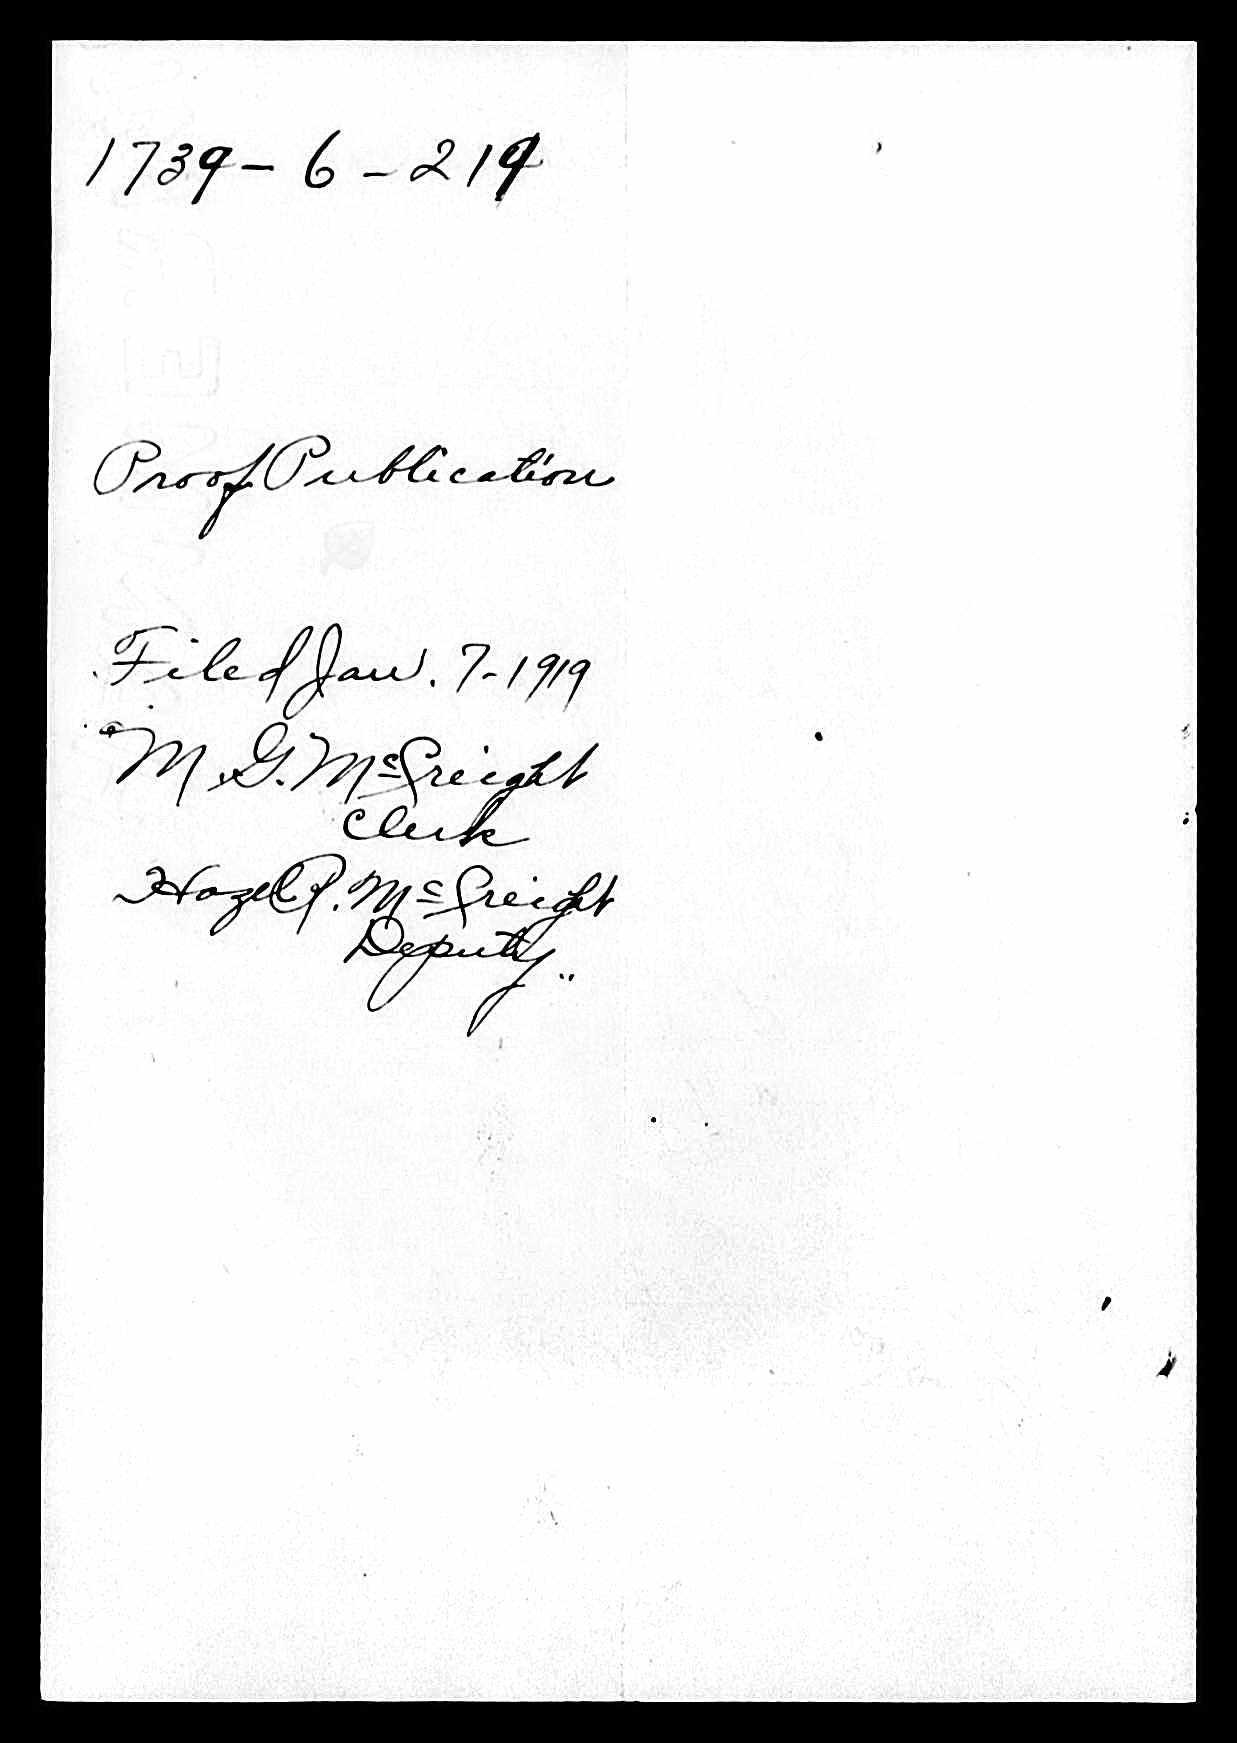 1739 - 6 - 219
Proof Publication
Filed Jan. 7 - 1919
M. G. McCreight
Clerk
Hazel R. McCreight
Deputy..